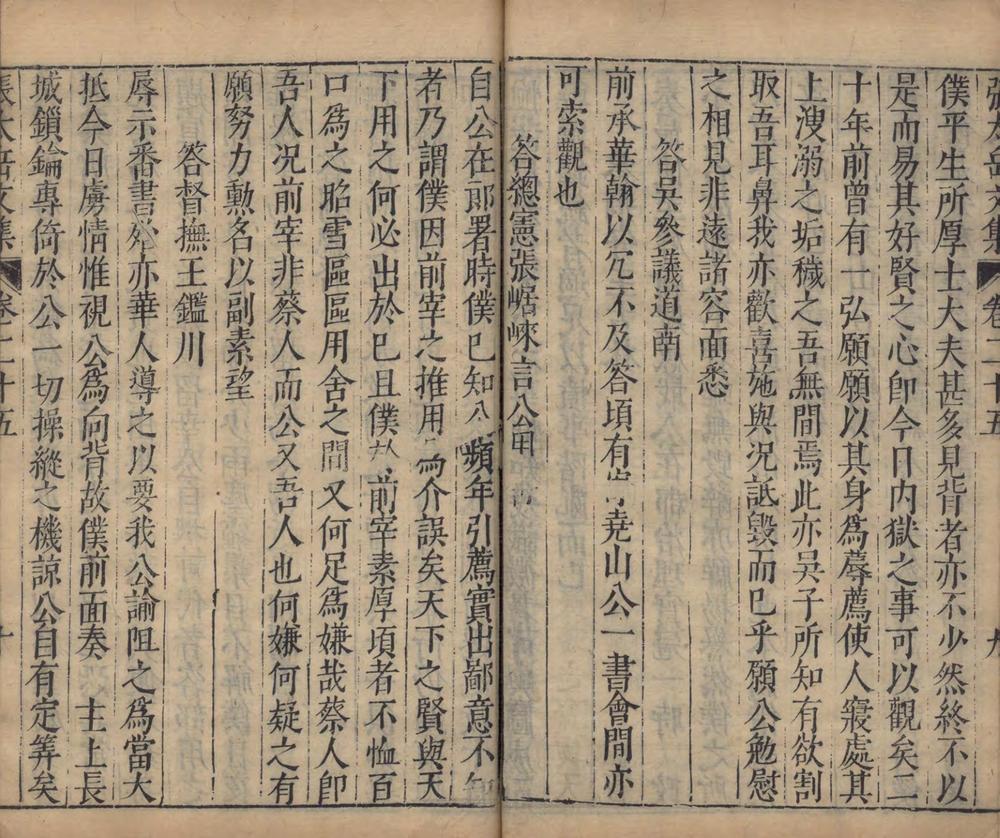 張太岳文集 卷二十五 九
僕平生所厚士大夫甚多見背者亦不少然終不以
是而易其好賢之心即今日内獄之事可以觀矣二
十年前曾有一弘願願以其身為蓐薦使人寢處其
上溲溺之垢穢之吾無間焉此亦吳子所知有欲割
取吾耳鼻我亦歡喜施與况詆毀而已乎願公勉慰
之相見非遠諸容面悉
答吳參議道南
前承華翰以冗不及答頃有 堯山公一書會間亦
可索觀也
答總憲張崌崍言公用
自公在郎署時僕已知公頻年引薦實出鄙意不知
者乃謂僕因前宰之推用為介誤矣天下之賢與天
下用之何必出於己且僕於前宰素厚頃者不恤百
口為之昭雪區區用舍之間又何足為嫌哉蔡人即
吾人况前宰非蔡人而公又吾人也何嫌何疑之有
願努力勳名以副素望
答督撫王鑑川
辱示番書必亦華人導之以要我公諭阻之為當大
抵今日虜情惟視公為向背故僕前面奏 主上長
城鎖鑰專倚於公一切操縱之機諒公自有定筭矣
張太岳文集 卷二十五 十